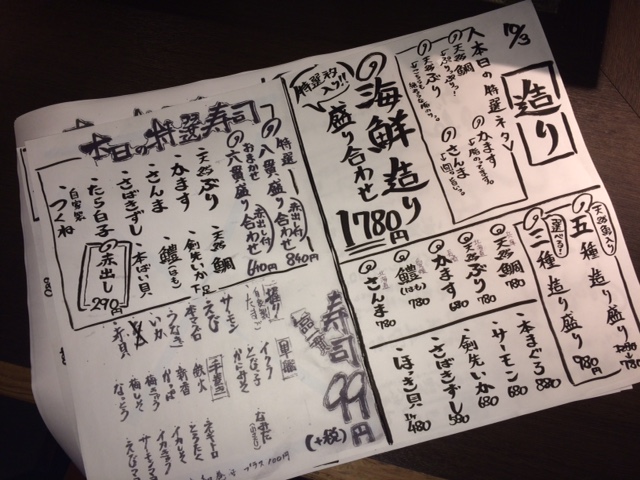 10/3
造り
〈本日の特選ネタ〉
天然鯛
天然ぶり
かます
さんま
特選ネタ入り!!
海鮮造り
盛り合わせ
1780円
天然鯛入り
五種造り盛り
選べる!
三種造り盛り
980円
天然鯛 780
天然ぶり 780
かます 680
鱧(はも) 780
さんま 780
本まぐろ 880
サーモン 680
剣先いか 680
さばきずし 580
ほっき貝 480
本日の特選寿司
特選
八貫盛り合わせ 赤出し付 840円
おまかせ
六貫盛り合わせ 赤出し付 640円
・天然ぶり
・天然鯛
・かます
・剣先いか下足
・さんま
・鱧(はも)
・さばきずし
・本ばい貝
・たら白子
・自家製つくね
の赤出し 290円
寿司
99円
(+税)
握り
・サーモン
・えび
・本マグロ
・うなぎ
・いか
・赤貝
軍艦
・イクラ
・とびっ子
・かにみそ
手巻き
・鉄火
・新香
・かっぱ
・梅きゅう
・梅しそ
・なっとう
・ネギトロ
・とろたく
・イカしそ
・イカキムチ
・サーモンマヨ
・えびマヨ
プラス100円